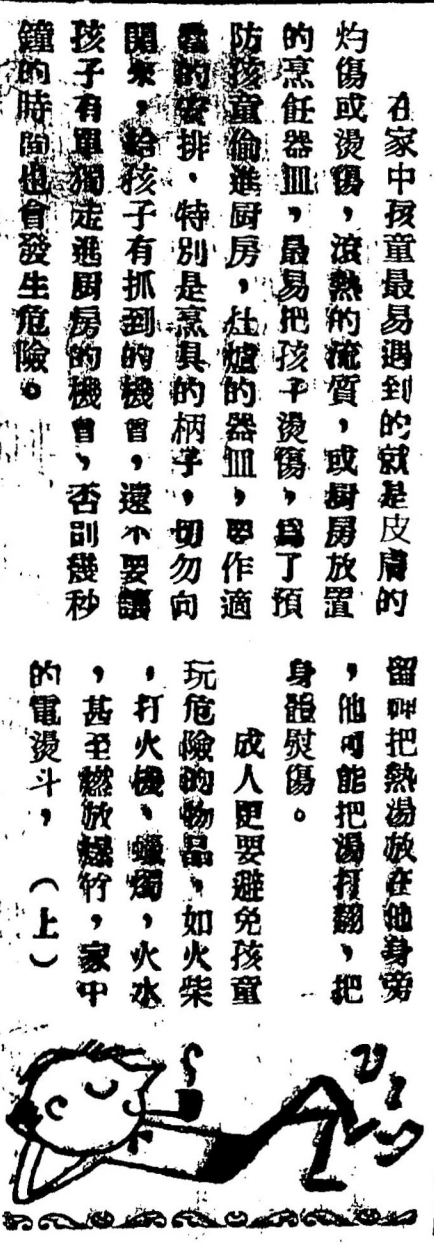 在家中孩童最易遇到的就是皮膚的
灼傷或燙傷，滾熱的流質，或厨房放置
的烹飪器皿，最易把孩子燙傷，爲了預
防孩童偷進厨房，灶爐的器皿，要作適
的安排，特別是烹具的柄子，切勿向
開來，給孩子有抓到的機會，還不要讓
孩子有單獨走進厨房的機會，否則幾秒
鐘的時間也會發生危險。
留神把熱湯放在他身旁
，他可能把湯打翻，把
身體熨傷。
成人更要避免孩童
玩危險的物品，如火柴
，打火機、蠟燭，火水
，甚至燃放爆竹，家中
的電燙斗，（上）